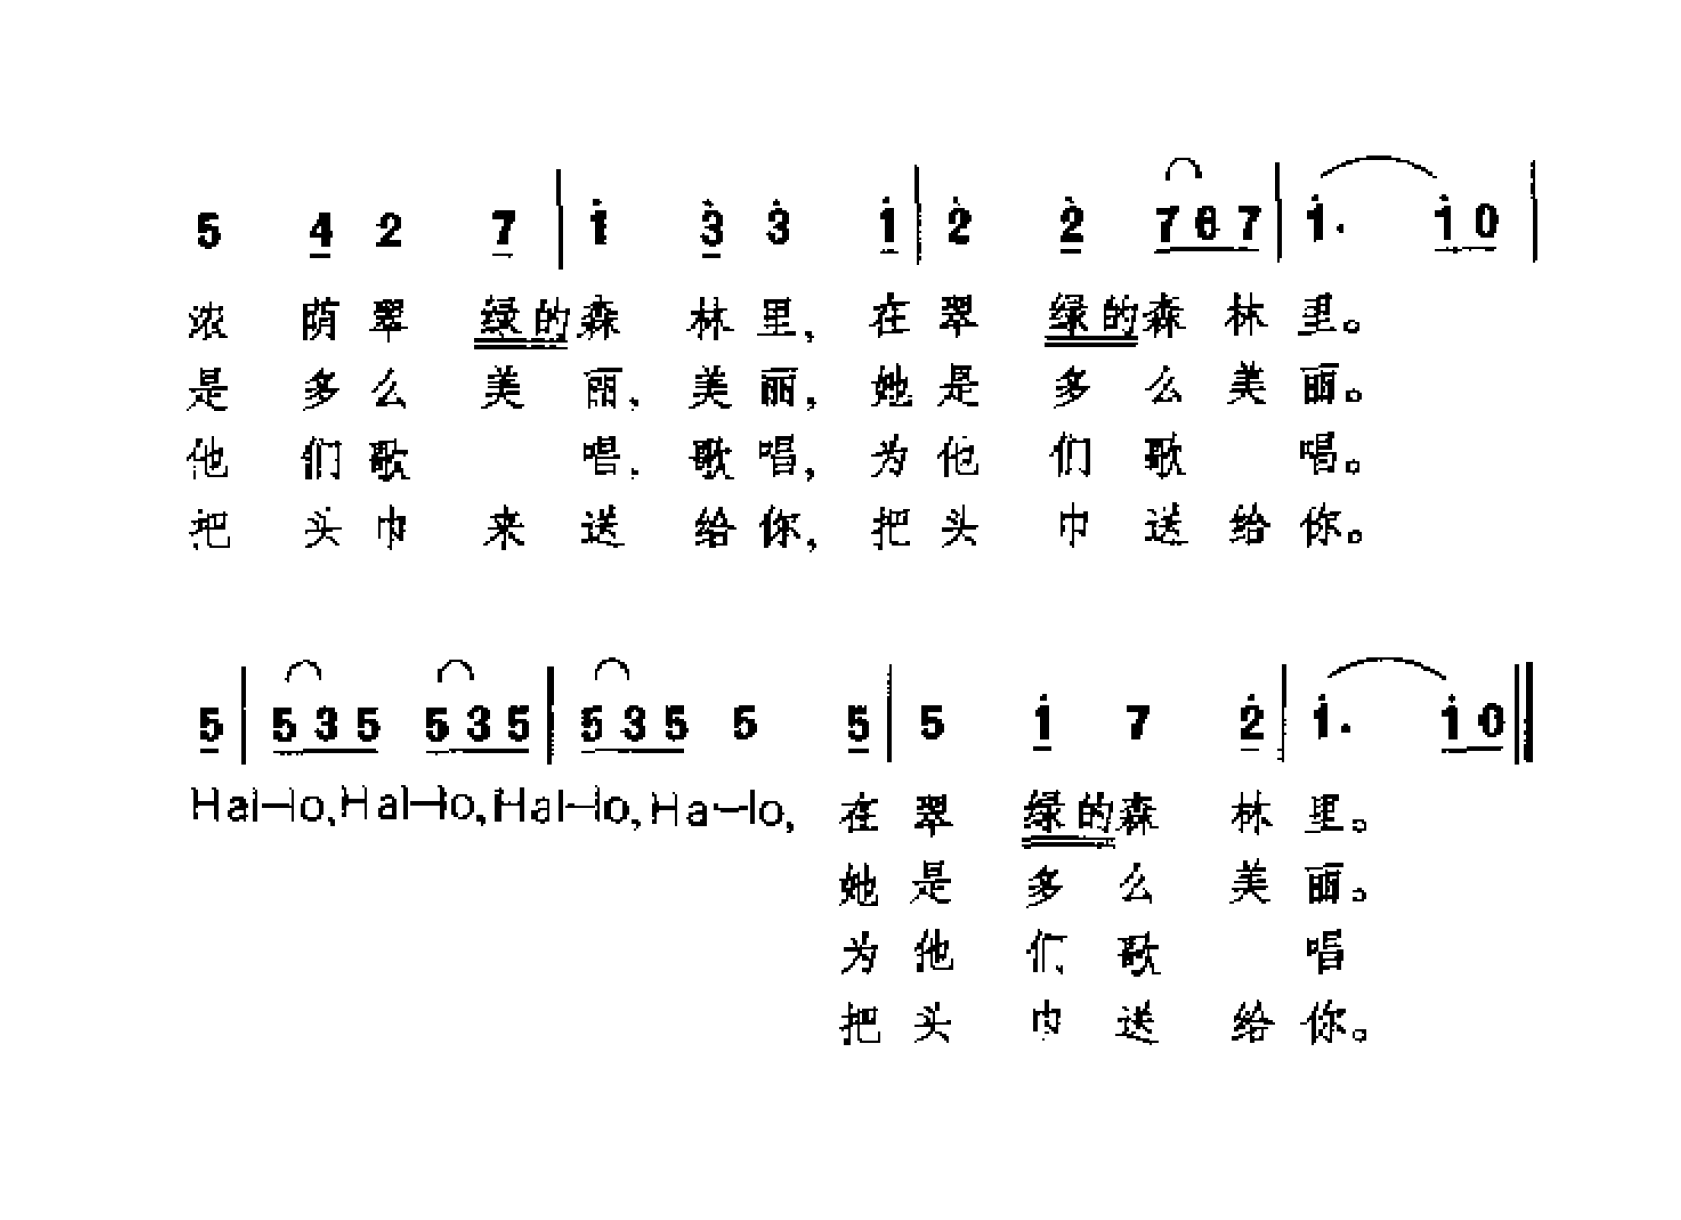 5 4 2 7 | i 3 3 i | 2 2 7 6 7 | i. i 0 |
浓 荫 翠 绿的森 林 里, 在 翠 绿的森 林 里。
是 多 么 美 丽, 美 丽, 她 是 多 么 美 丽。
他 们 歌 唱, 歌 唱, 为 他 们 歌 唱。
把 头 巾 来 送 给 你, 把 头 巾 送 给 你。
5 | 5 3 5 5 3 5 | 5 3 5 5 5 | 5 i 7 2 | i. i 0 ‖
Hal-lo, Hal-lo, Hal-lo, Ha-lo, 在 翠 绿的森 林 里。
她 是 多 么 美 丽。
为 他 们 歌 唱
把 头 巾 送 给 你。